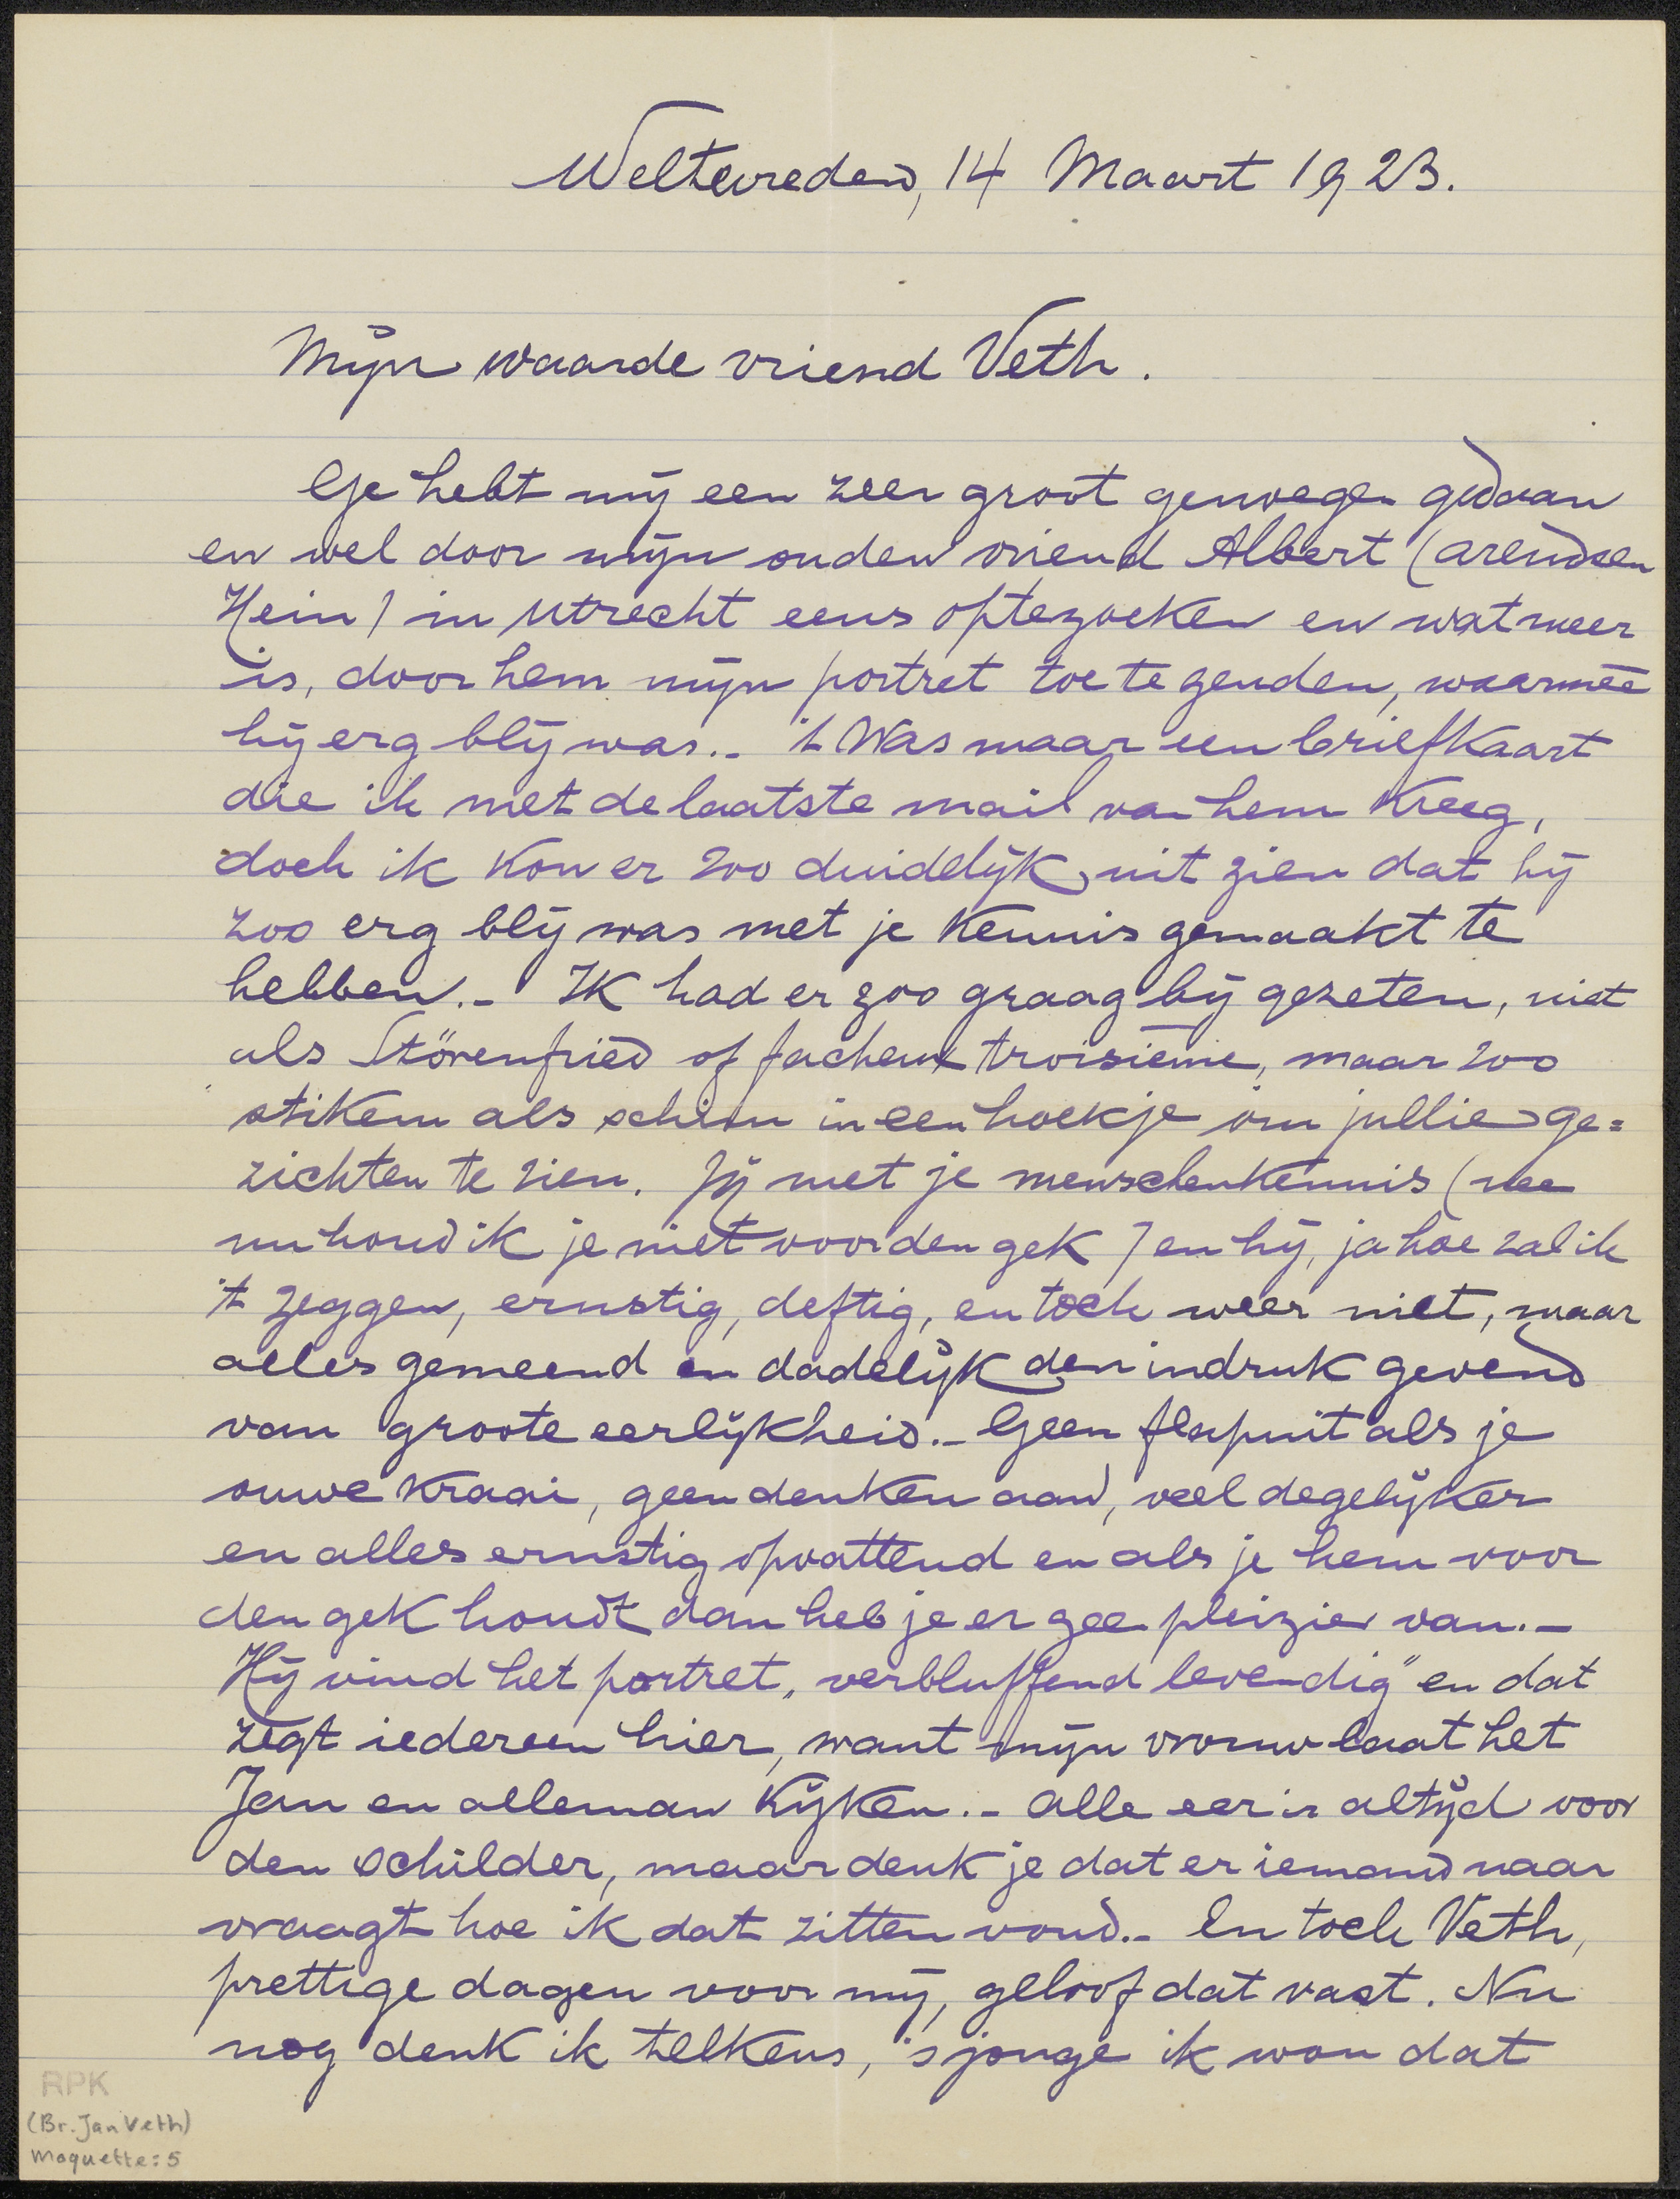 Weltevreden, 14 Maart 1923.
Mijn waarde vriend Veth.
Ge hebt mij een zeer groot genoegen gedaan
en wel door mijn ouden vriend Albert (Arendsen
Hein) in Utrecht eens optezoeken en wat meer
is, door hem mijn portret toe te zenden, waarmeê
hij erg blij was.- 't Was maar een briefkaart
die ik met de laatste mail van hem kreeg,
doch ik kon er zoo duidelijk uit zien dat hij
zoo erg blij was met je kennis gemaakt te
hebben.- Ik had er zoo graag bij gezeten, niet
als Störenfried of facheux troisième, maar zoo
stikem als schim in een hoekje om jullie ge=
zichten te zien. Jij met je menschenkennis (nee
nu houd ik je niet voor den gek) en hij, ja hoe zal ik
't zeggen, ernstig, deftig, en toch weer niet, maar
alles gemeend en dadelijk den indruk gevend
van groote eerlijkheid.- Geen flapuit als je
ouwe Kraai, geen denken aan, veel degelijker
en alles ernstig opvattend en als je hem voor
den gek houdt dan heb je er gee pleizier van.-
Hij vind het portret „verbluffend levendig" en dat
zegt iedereen hier, want mijn vrouw laat het
Jan en alleman kijken.- Alle eer is altijd voor
den schilder, maar denk je dat er iemand naar
vraagt hoe ik dat zitten vond.- En toch Veth,
prettige dagen voor mij, geloof dat vast. Nu
nog denk ik telkens, 'sjonge ik wou dat
RPK
(Br. Jan Veth)
Maquette: 5